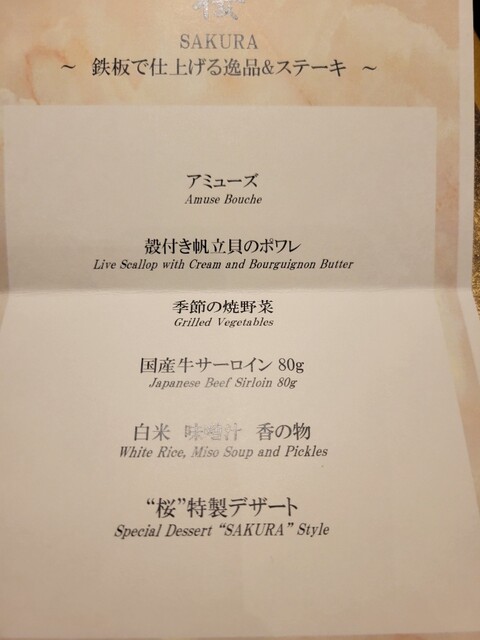 桜
SAKURA
～ 鉄板で仕上げる逸品&ステーキ ～
アミューズ
Amuse Bouche
殻付き帆立貝のポワレ
Live Scallop with Cream and Bourguignon Butter
季節の焼野菜
Grilled Vegetables
国産牛サーロイン 80g
Japanese Beef Sirloin 80g
白米 味噌汁 香の物
White Rice, Miso Soup and Pickles
“桜”特製デザート
Special Dessert “SAKURA” Style